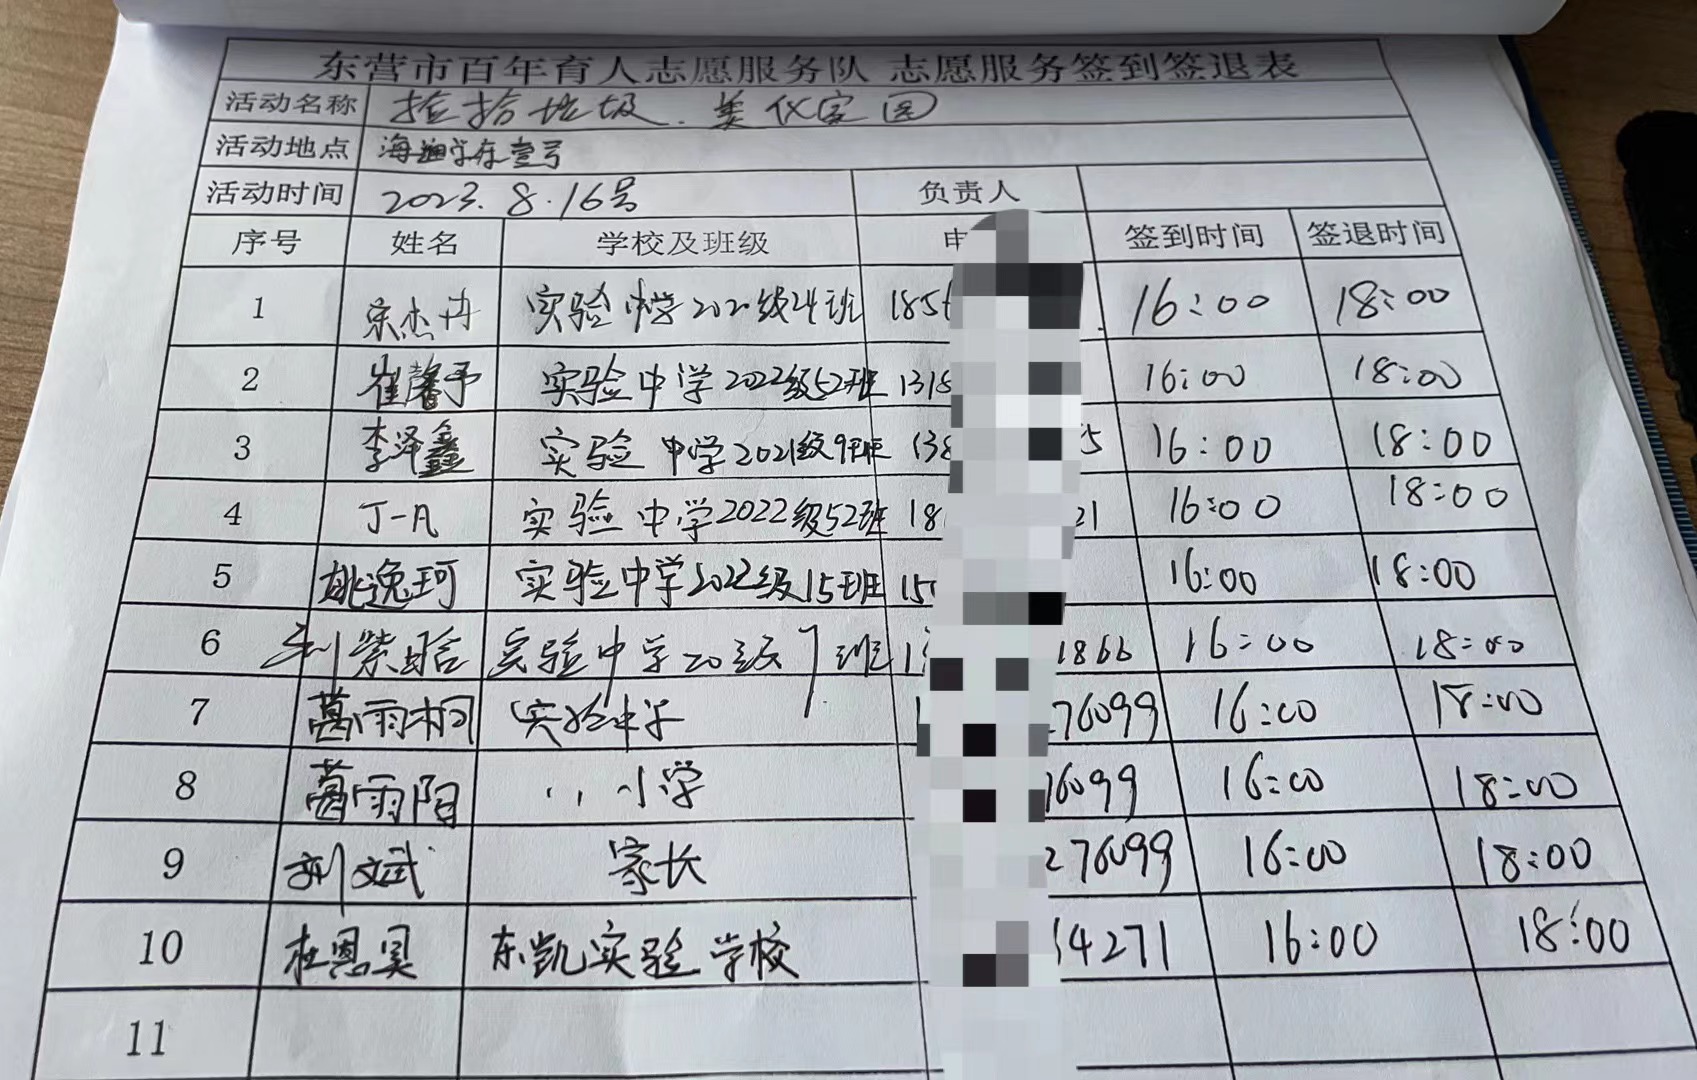 东营市百年育人志愿服务队 志愿服务签到签退表
活动名称 捡拾垃圾.美化家园
活动地点 海通学府壹号
活动时间 2023.8.16号 负责人
序号 姓名 学校及班级 签到时间 签退时间
1 宋杰冉 实验中学2020级24班 185 16:00 18:00
2 崔馨予 实验中学2022级52班 1318 16:00 18:00
3 李泽鑫 实验中学2021级9班 138 5 16:00 18:00
4 丁一凡 实验中学2022级52班 18 21 16:00 18:00
5 姚逸珂 实验中学2022级15班 15 16:00 18:00
6 刘紫晗 实验中学20级7班 1 1866 16:00 18:00
7 葛雨桐 实验中学 76099 16:00 18:00
8 葛雨阳 〃 小学 6099 16:00 18:00
9 刘文斌 家长 276099 16:00 18:00
10 杜恩昊 东凯实验学校 14271 16:00 18:00
11